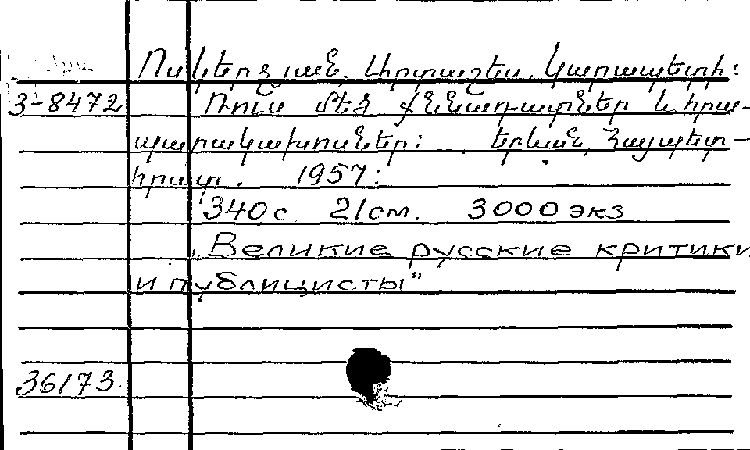 Ոսկերչյան Արտաշես Կարապետի:
3-8472 Ռուս մեծ քննադատներ և հրա-
պարակախոսներ: Երևան, Հայպետ-
հրատ. 1957:
340 с. 21 см. 3000 экз
„Великие русские критики
и публицисты"
36173